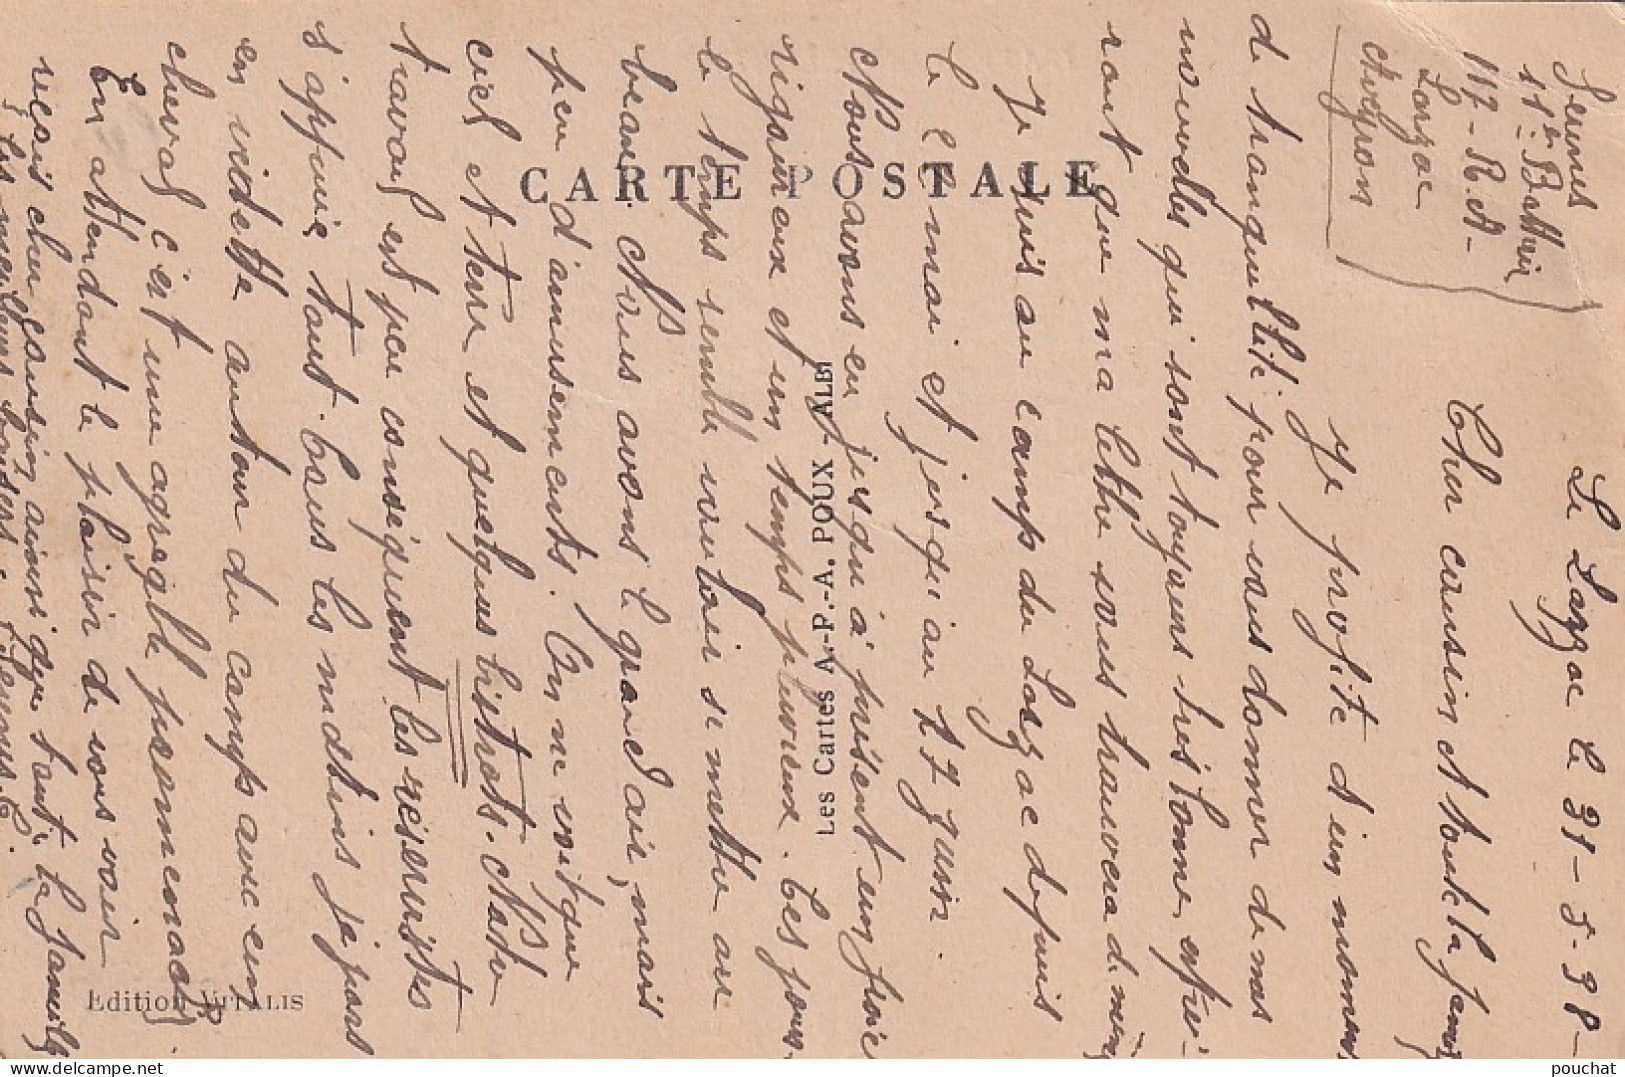 Le Larzac le 31-5-38-
Jeunes
11e Battrie
117-R.A-
Larzac
Aveyron
Cher cousin et toute la famille
Je profite d'un moment
de tranquillité pour vous donner de mes
nouvelles qui sont toujours très bonne, espé-
rant que ma lettre vous trouvera de même
Je suis au camp du Larzac depuis
le mai et jusqu'au 17 juin.
Nous avons eu jusqu'à présent un froid
rigoureux et un temps pluvieux. Ces jours
le temps semble vouloir se mettre au
beau. Nous avons le grand air, mais
peu d'amusements. On ne voit que
ciel et terre et quelques bistrots. Notre
travail est peu conséquent les réservistes
s'appuie tout. Tous les matins je pars
en vidette autour du camp avec un
cheval c'est une agréable promenade
En attendant le plaisir de vous voir
recois cher cousin ainsi que toute la famille
les meilleurs baisers. Jeunes E.
CARTE POSTALE
Les Cartes A.-P.-A. POUX - ALBI
Edition VITALIS
pouchat